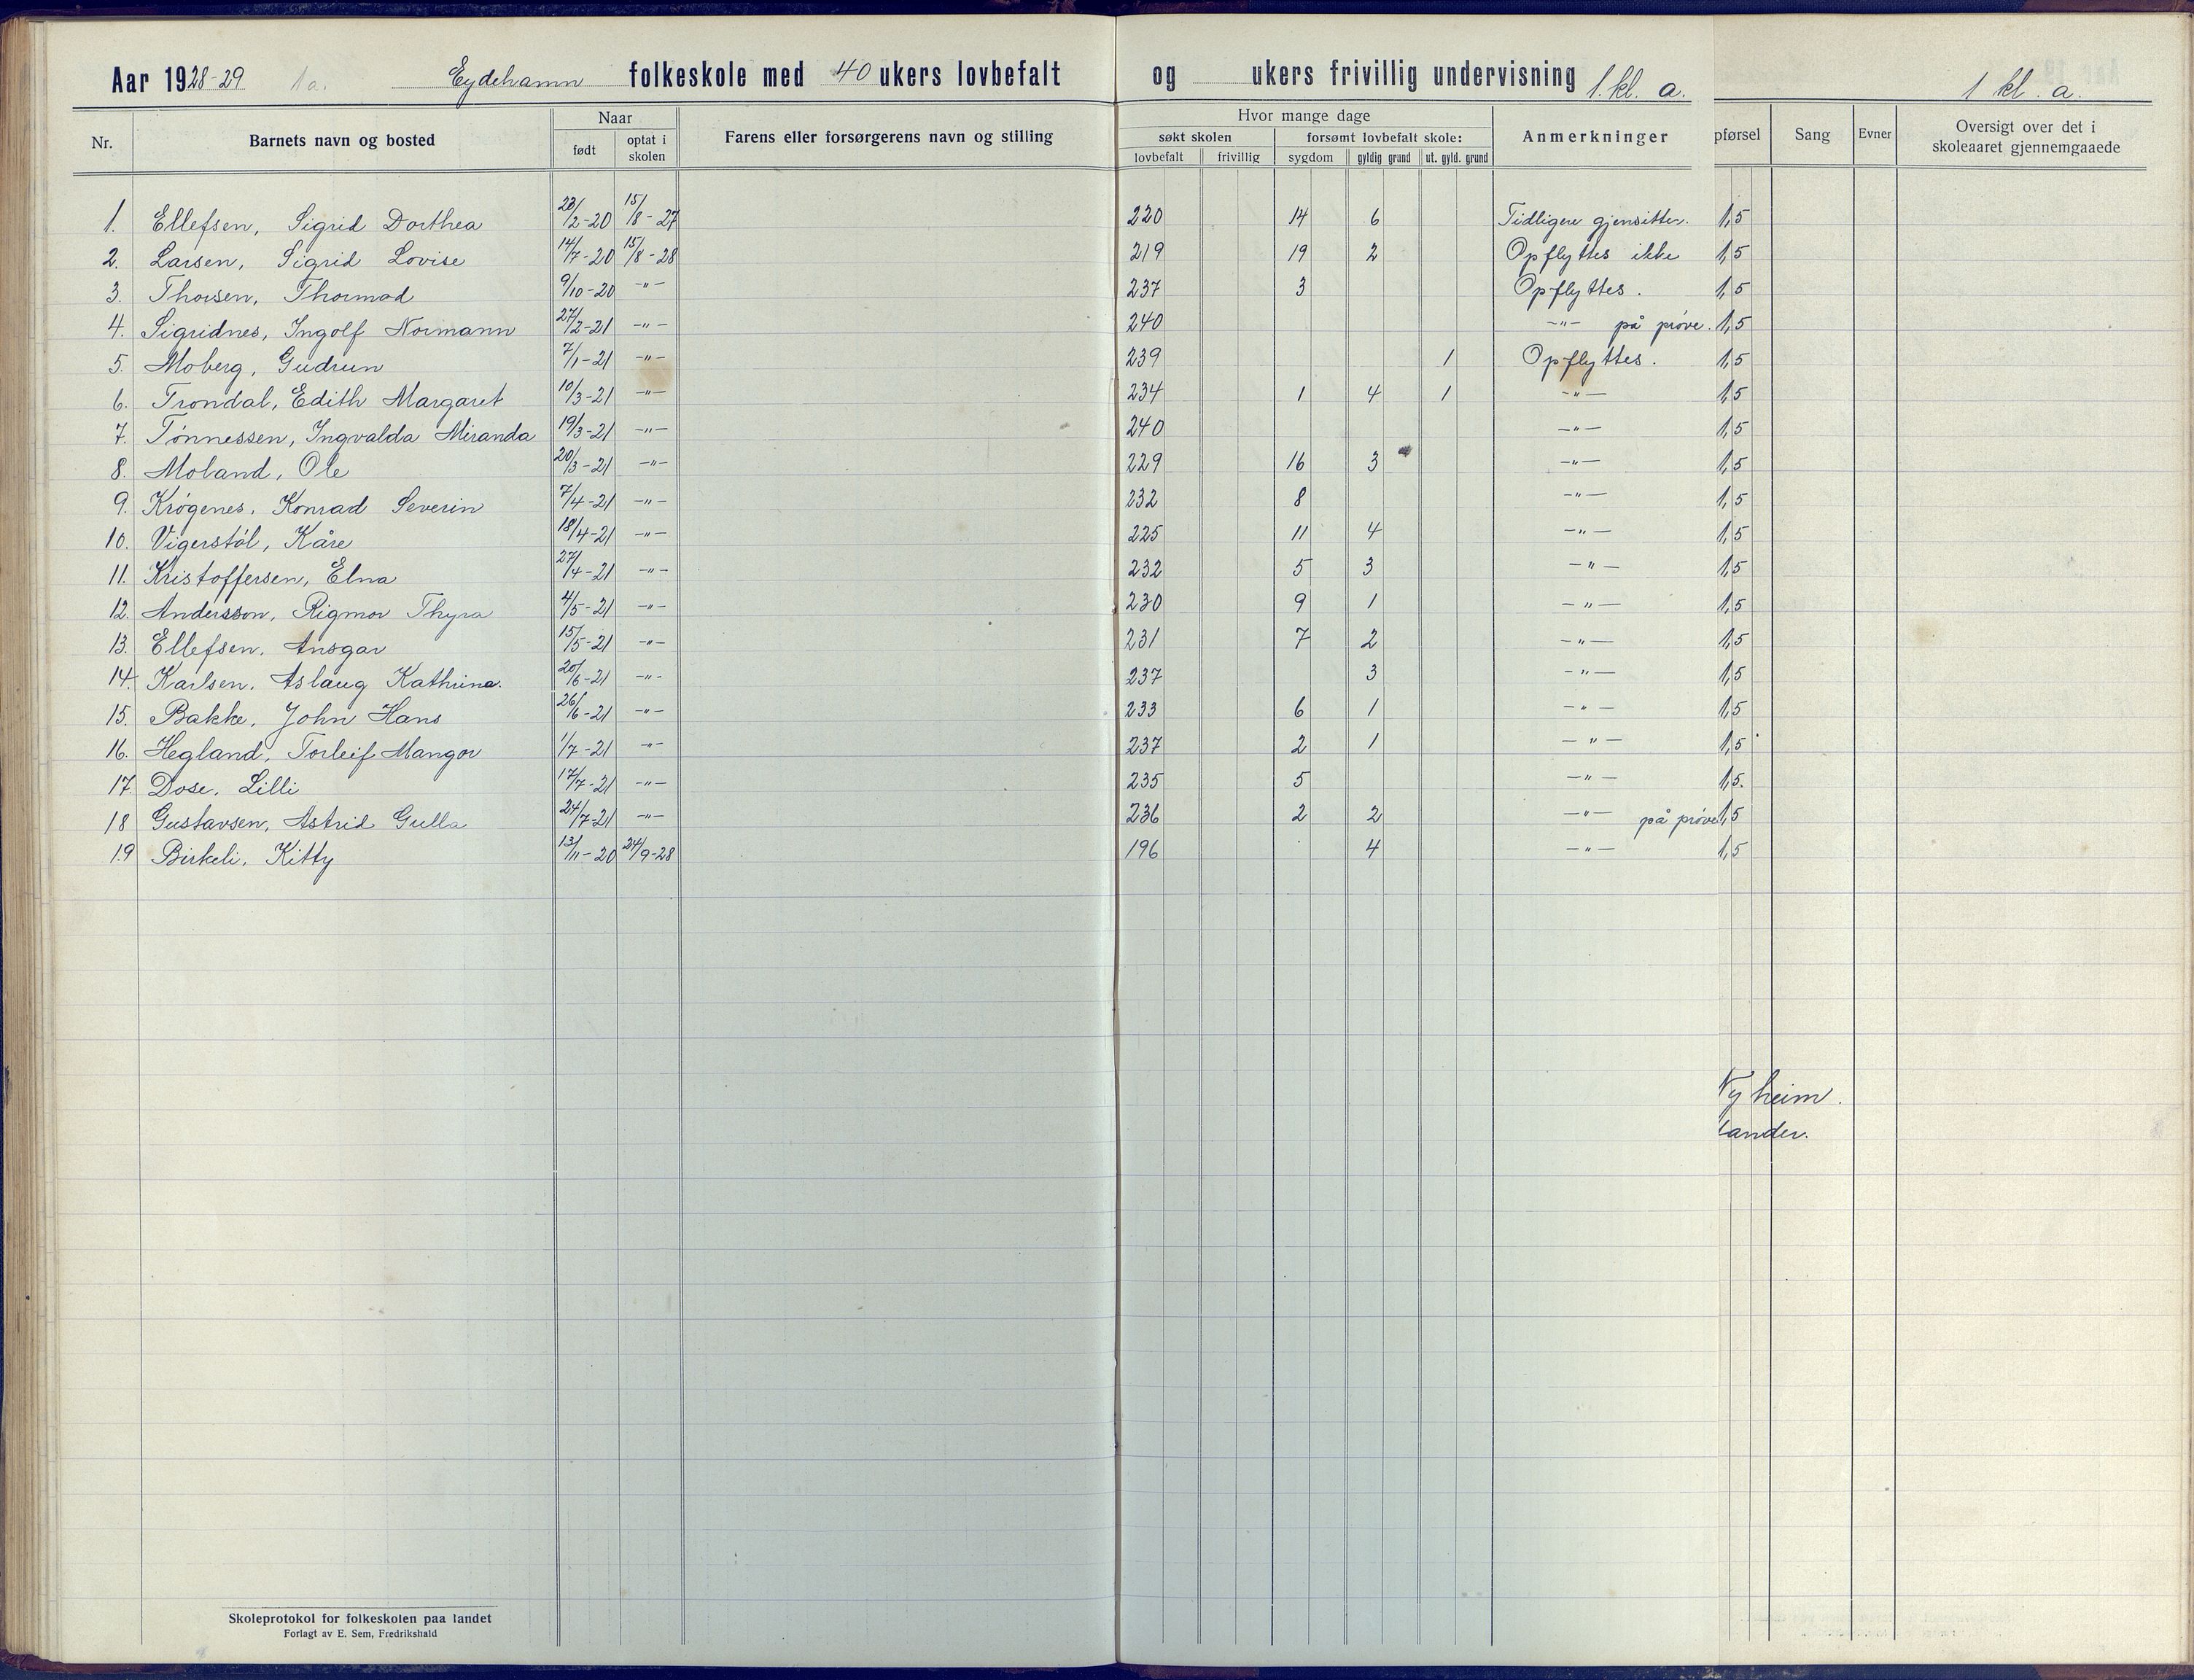 Aar 1928-29 1a. Eydehamn folkeskole med 40 ukers lovbefalt og ukers frivillig undervisning 1. kl. a. 1 kl. a.
Nr. Barnets navn og bosted Naar født optat i skolen Farens eller forsørgerens navn og stilling Hvor mange dage søkt skolen lovbefalt frivillig forsømt lovbefalt skole: sygdom gyldig grund ut. gyld. grund Anmerkninger pførsel Sang Evner Oversigt over det i skoleaaret gjennemgaaede
1. Ellefsen, Sigrid Dorthea 23/2-20 15/8-27 220 14 6 Tidligere gjensitter. 1,5
2. Larsen, Sigrid Lovise 14/7-20 15/8-28 219 19 2 Opflyttes ikke 1,5
3. Thorsen, Thormod 9/10-20 -"- 237 3 Opflyttes. 1,5
4. Sigridnes, Ingolf Normann 27/2-21 -"- 240 -"- på prøve. 1,5
5. Moberg, Gudrun 7/1-21 -"- 239 1 Opflyttes. 1,5
6. Trondal, Edith Margaret 10/3-21 -"- 234 1 4 1 -"- 1,5
7. Tønnessen, Ingvalda Miranda 19/3-21 -"- 240 -"- 1,5
8. Moland, Ole 20/3-21 -"- 229 16 3 -"- 1,5
9. Krøgenes, Konrad Severin 7/4-21 -"- 232 8 -"- 1,5
10. Vigerstøl, Kåre 18/4-21 -"- 225 11 4 -"- 1,5
11. Kristoffersen, Elna 27/4-21 -"- 232 5 3 -"- 1,5
12. Andersson, Rigmor Thyra 4/5-21 -"- 230 9 1 -"- 1,5
13. Ellefsen, Ansgar 15/5-21 -"- 231 7 2 -"- 1,5
14. Karlsen, Aslaug Kathrine. 20/6-21 -"- 237 3 -"- 1,5
15. Bakke, John Hans 26/6-21 -"- 233 6 1 -"- 1,5
16. Hegland, Torleif Mangor 1/7-21 -"- 237 2 1 -"- 1,5
17. Dose, Lilli 17/7-21 -"- 235 5 -"- 1,5.
18 Gustavsen, Astrid Gulla 24/7-21 -"- 236 2 2 -"- på prøve 1,5
19 Birkeli, Kitty 13/11-20 24/9-28 196 4 -"- 1,5
Nyheim.
lander.
Skoleprotokol for folkeskolen paa landet
Forlagt av E. Sem, Fredrikshald